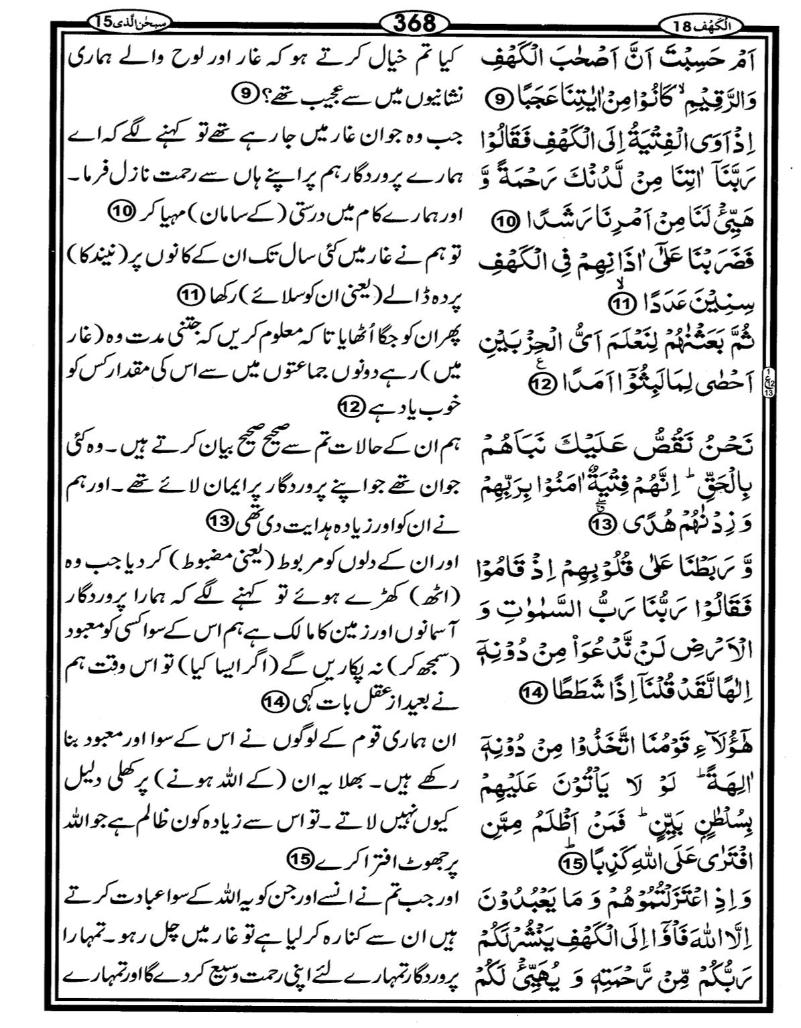 الكهف 18
368
سبحٰن الّذی 15
اَمْ حَسِبْتَ اَنَّ اَصْحٰبَ الْكَهْفِ
وَالرَّقِيْمِ ۙ كَانُوْا مِنْ اٰيٰتِنَا عَجَبًا ⑨
اِذْ اَوَى الْفِتْيَةُ اِلَى الْكَهْفِ فَقَالُوْا
رَبَّنَآ اٰتِنَا مِنْ لَّدُنْكَ رَحْمَةً وَّ
هَيِّئْ لَنَا مِنْ اَمْرِنَا رَشَدًا ⑩
فَضَرَبْنَا عَلٰٓى اٰذَانِهِمْ فِى الْكَهْفِ
سِنِيْنَ عَدَدًا ۙ ⑪
ثُمَّ بَعَثْنٰهُمْ لِنَعْلَمَ اَىُّ الْحِزْبَيْنِ
اَحْصٰى لِمَا لَبِثُوْٓا اَمَدًا ⑫ ع
نَحْنُ نَقُصُّ عَلَيْكَ نَبَاَهُمْ
بِالْحَقِّ ؕ اِنَّهُمْ فِتْيَةٌ اٰمَنُوْا بِرَبِّهِمْ
وَ زِدْنٰهُمْ هُدًى ⑬
وَّ رَبَطْنَا عَلٰى قُلُوْبِهِمْ اِذْ قَامُوْا
فَقَالُوْا رَبُّنَا رَبُّ السَّمٰوٰتِ وَ
الْاَرْضِ لَنْ نَّدْعُوَا۟ مِنْ دُوْنِهٖٓ
اِلٰهًا لَّقَدْ قُلْنَآ اِذًا شَطَطًا ⑭
هٰٓؤُلَآءِ قَوْمُنَا اتَّخَذُوْا مِنْ دُوْنِهٖٓ
اٰلِهَةً ؕ لَوْ لَا يَاْتُوْنَ عَلَيْهِمْ
بِسُلْطٰنٍۭ بَيِّنٍ ؕ فَمَنْ اَظْلَمُ مِمَّنِ
افْتَرٰى عَلَى اللّٰهِ كَذِبًا ؕ ⑮
وَ اِذِ اعْتَزَلْتُمُوْهُمْ وَ مَا يَعْبُدُوْنَ
اِلَّا اللّٰهَ فَاْوٗٓا اِلَى الْكَهْفِ يَنْشُرْ لَكُمْ
رَبُّكُمْ مِّنْ رَّحْمَتِهٖ وَ يُهَيِّئْ لَكُمْ
کیا تم خیال کرتے ہو کہ غار اور لوح والے ہماری
نشانیوں میں سے عجیب تھے؟ ⑨
جب وہ جوان غار میں جا رہے تھے تو کہنے لگے کہ اے
ہمارے پروردگار ہم پر اپنے ہاں سے رحمت نازل فرما۔
اور ہمارے کام میں درستی (کے سامان) مہیا کر ⑩
تو ہم نے غار میں کئی سال تک ان کے کانوں پر (نیند کا)
پردہ ڈالے (یعنی ان کو سلائے) رکھا ⑪
پھر ان کو جگا اُٹھایا تاکہ معلوم کریں کہ جتنی مدت وہ (غار
میں) رہے دونوں جماعتوں میں سے اس کی مقدار کس کو
خوب یاد ہے ⑫
ہم ان کے حالات تم سے صحیح صحیح بیان کرتے ہیں۔ وہ کئی
جوان تھے جو اپنے پروردگار پر ایمان لائے تھے۔ اور ہم
نے ان کو اور زیادہ ہدایت دی تھی ⑬
اور ان کے دلوں کو مربوط (یعنی مضبوط) کر دیا جب وہ
(اٹھ) کھڑے ہوئے تو کہنے لگے کہ ہمارا پروردگار
آسمانوں اور زمین کا مالک ہے ہم اس کے سوا کسی کو معبود
(سمجھ کر) نہ پکاریں گے (اگر ایسا کیا) تو اس وقت ہم
نے بعید از عقل بات کہی ⑭
ان ہماری قوم کے لوگوں نے اس کے سوا اور معبود بنا
رکھے ہیں۔ بھلا یہ ان (کے اللہ ہونے) پر کھلی دلیل
کیوں نہیں لاتے۔ تو اس سے زیادہ کون ظالم ہے جو اللہ
پر جھوٹ افترا کرے ⑮
اور جب تم نے انسے اور جن کو یہ اللہ کے سوا عبادت کرتے
ہیں ان سے کنارہ کر لیا ہے تو غار میں چل رہو۔ تمہارا
پروردگار تمہارے لئے اپنی رحمت وسیع کر دے گا اور تمہارے